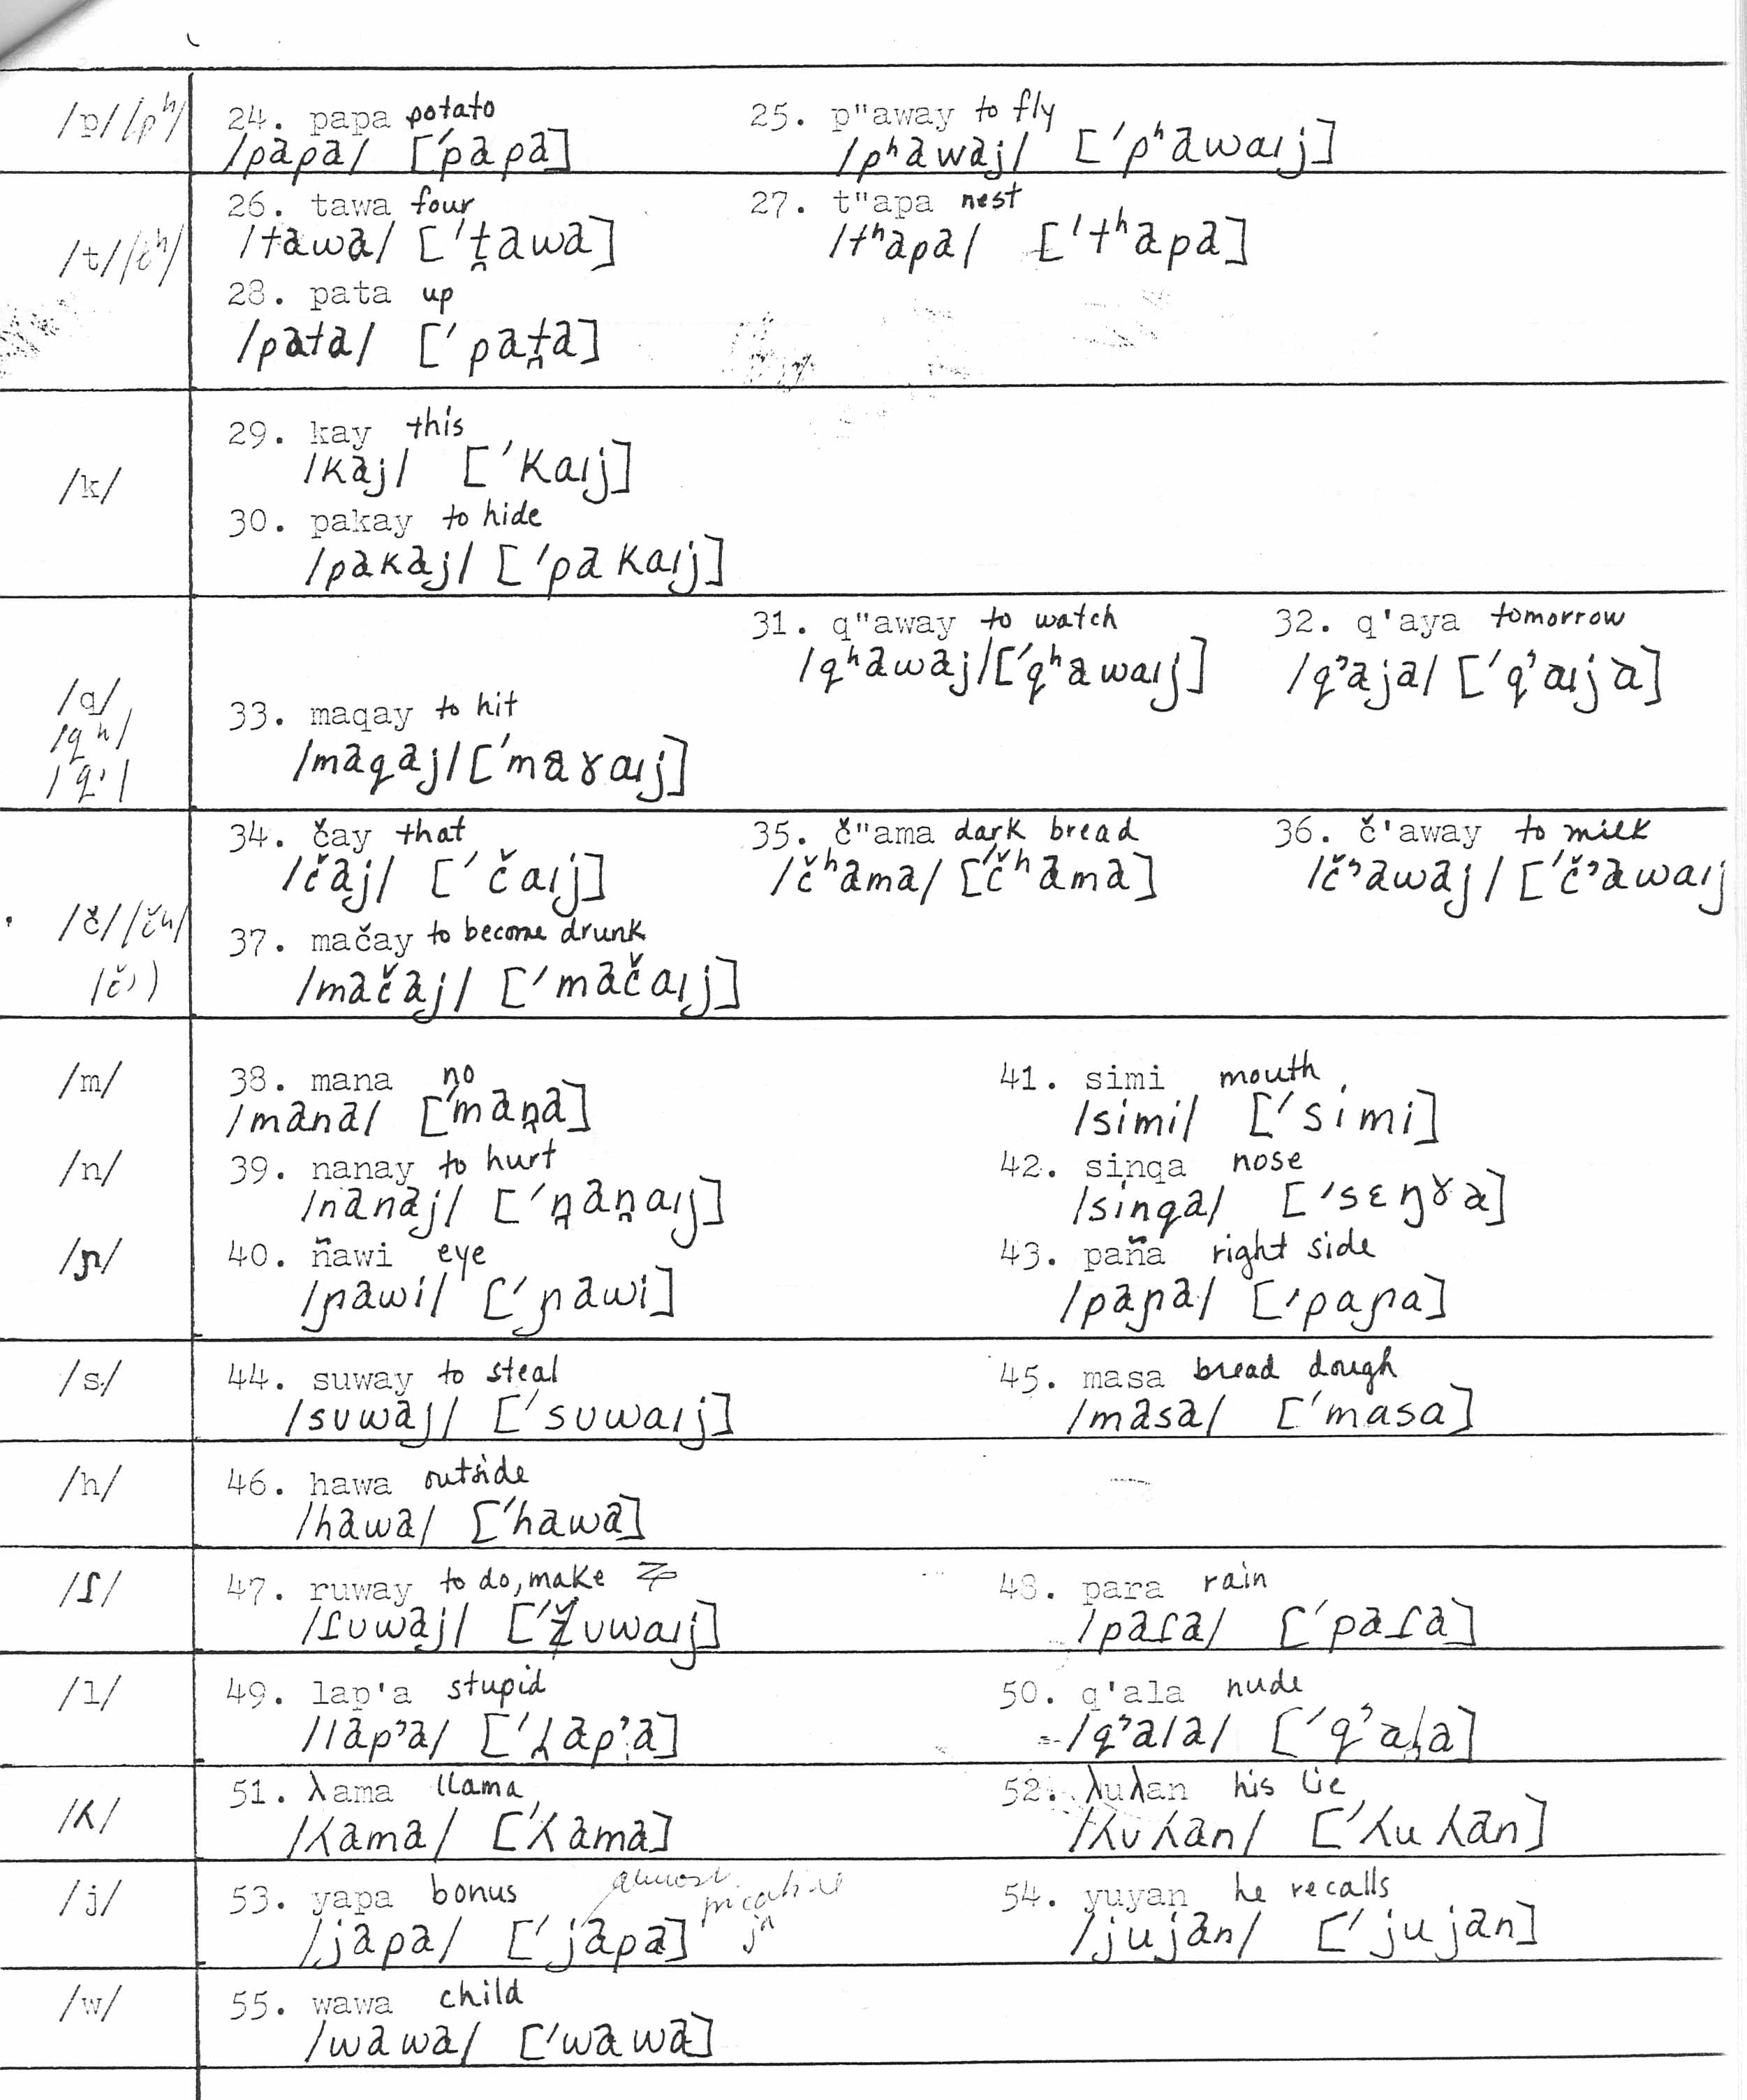 /p/ /pʰ/
24. papa potato
/papa/ [ˈpapa]
25. p"away to fly
/pʰawaj/ [ˈpʰawaɪj]
/t/ /tʰ/
26. tawa four
/tawa/ [ˈt̪awa]
27. t"apa nest
/tʰapa/ [ˈtʰapa]
28. pata up
/pata/ [ˈpat̪a]
/k/
29. kay this
/kaj/ [ˈkaɪj]
30. pakay to hide
/pakaj/ [ˈpakaɪj]
/q/
/qʰ/
/q'/
31. q"away to watch
/qʰawaj/ [ˈqʰawaɪj]
32. q'aya tomorrow
/qʼaja/ [ˈqʼaɪja]
33. maqay to hit
/maqaj/ [ˈmaɣaɪj]
/č/ /čʰ/
/č'/
34. čay that
/čaj/ [ˈčaɪj]
35. č"ama dark bread
/čʰama/ [ˈčʰama]
36. č'away to milk
/čʼawaj/ [ˈčʼawaɪj
37. mačay to become drunk
/mačaj/ [ˈmačaɪj]
/m/
38. mana no
/mana/ [ˈman̪a]
41. simi mouth
/simi/ [ˈsimi]
/n/
39. nanay to hurt
/nanaj/ [ˈn̪an̪aɪj]
42. sinqa nose
/sinqa/ [ˈsɛŋɣa]
/ɲ/
40. ñawi eye
/ɲawi/ [ˈɲawi]
43. paña right side
/paɲa/ [ˈpaɲa]
/s/
44. suway to steal
/suwaj/ [ˈsuwaɪj]
45. masa bread dough
/masa/ [ˈmasa]
/h/
46. hawa outside
/hawa/ [ˈhawa]
/ɾ/
47. ruway to do, make
/ɾuwaj/ [ˈžuwaɪj]
48. para rain
/paɾa/ [ˈpaɾa]
/l/
49. lap'a stupid
/lapʼa/ [ˈl̪apʼa]
50. q'ala nude
/qʼala/ [ˈqʼal̪a]
/ʎ/
51. λama llama
/ʎama/ [ˈʎama]
52. λuλan his lie
/ʎuʎan/ [ˈʎuʎan]
/j/
53. yapa bonus almost
/japa/ [ˈjapa]
54. yuyan he recalls
/jujan/ [ˈjujan]
/w/
55. wawa child
/wawa/ [ˈwawa]